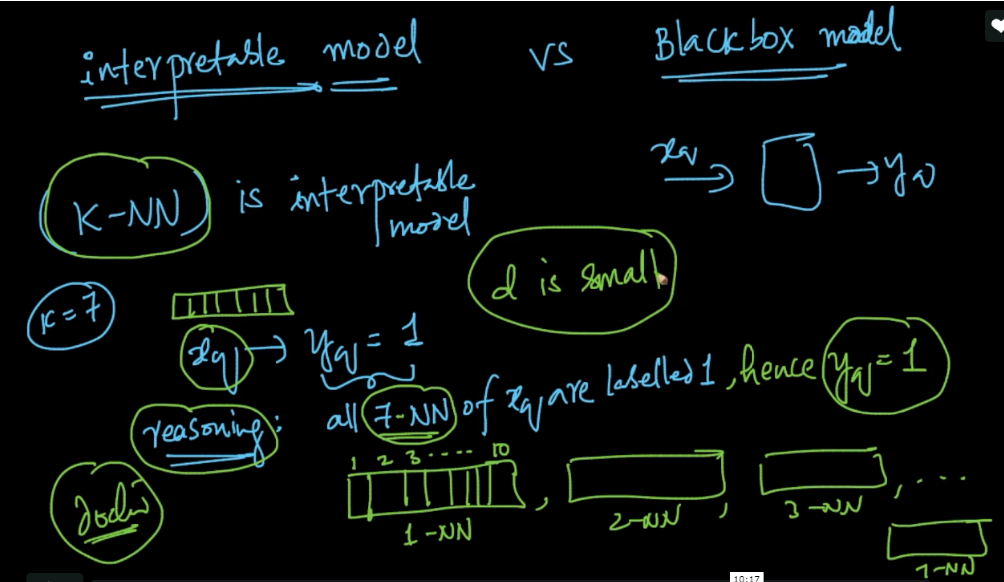 interpretable model vs Blackbox model
xq → → yq
K-NN is interpretable model
d is small
K=7
xq → yq = 1
reasoning: all 7-NN of xq are labelled 1, hence yq = 1
1 2 3 .... 10
1-NN , 2-NN , 3-NN , ...
7-NN
10:17